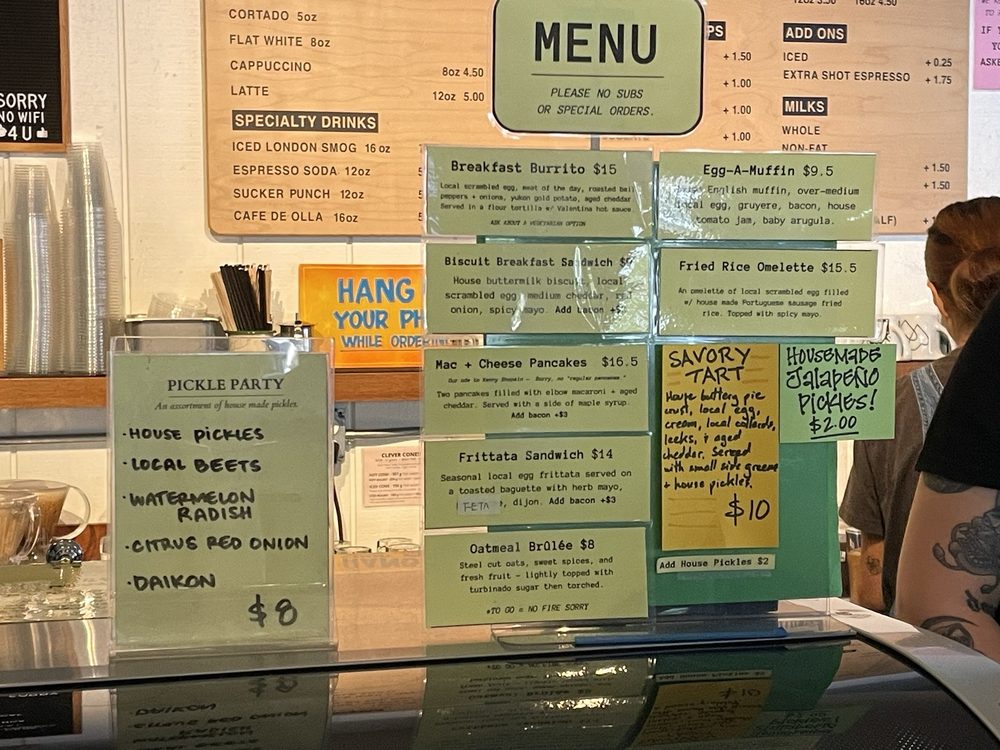 SORRY
NO WIFI
4 U
CORTADO 5oz
FLAT WHITE 8oz
CAPPUCCINO 8oz 4.50
LATTE 12oz 5.00
SPECIALTY DRINKS
ICED LONDON SMOG 16 oz
ESPRESSO SODA 12oz
SUCKER PUNCH 12oz
CAFE DE OLLA 16oz
MENU
PLEASE NO SUBS
OR SPECIAL ORDERS.
PS
+1.50
+1.00
+1.00
+1.00
ADD ONS
ICED +0.25
EXTRA SHOT ESPRESSO +1.75
MILKS
WHOLE
NON-FAT
+1.50
+1.50
HANG
YOUR PH
WHILE ORDERING
Breakfast Burrito $15
Local scrambled egg, meat of the day, roasted bell
peppers + onions, yukon gold potato, aged cheddar
Served in a flour tortilla w/ Valentina hot sauce.
ASK ABOUT A VEGETARIAN OPTION
Egg-A-Muffin $9.5
English muffin, over-medium
local egg, gruyere, bacon, house
tomato jam, baby arugula.
Biscuit Breakfast Sandwich
House buttermilk biscuit, local
scrambled egg, medium cheddar, red
onion, spicy mayo. Add bacon
Fried Rice Omelette $15.5
An omelette of local scrambled egg filled
w/ house made Portuguese sausage fried
rice. Topped with spicy mayo.
Mac + Cheese Pancakes $16.5
Our ode to Kenny Shopsin - Sorry, no "regular pancakes."
Two pancakes filled with elbow macaroni + aged
cheddar. Served with a side of maple syrup.
Add bacon +$3
Frittata Sandwich $14
Seasonal local egg frittata served on
a toasted baguette with herb mayo,
FETA, dijon. Add bacon +$3
Oatmeal Brûlée $8
Steel cut oats, sweet spices, and
fresh fruit - lightly topped with
turbinado sugar then torched.
*TO GO = NO FIRE SORRY
SAVORY
TART
House buttery pie
crust, local egg,
cream, local collards,
leeks, + aged
cheddar. Served
with small side greens
+ house pickles.
$10
Add House Pickles $2
HOUSEMADE
JALAPEÑO
PICKLES!
$2.00
PICKLE PARTY
An assortment of house made pickles.
·HOUSE PICKLES
·LOCAL BEETS
·WATERMELON
RADISH
·CITRUS RED ONION
·DAIKON
$8
CLEVER CONES